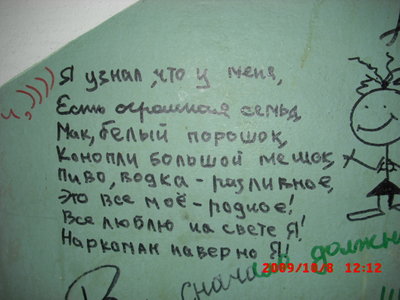 Я узнал, что у меня,
Есть огромная семья
Мак, белый порошок,
Конопли большой мешок,
Пиво, водка - разливное,
Это все моё - родное!
Все люблю на свете Я!
Наркоман наверно Я!
2009/10/8 12:12
сначала должн